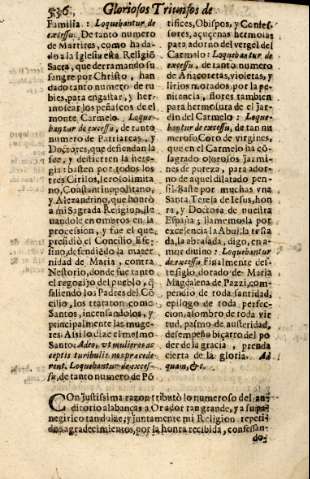 536 Gloriosos Triunfos de
Familia: Loquebantur de
excessu. De tanto numero
de Martires, como ha da-
do a la Iglesia esta Religiõ
Sacra, que derramando su
sangre por Christo, han
dado tanto numero de ru-
bies, para engastar, y her-
mosear los peñascos de el
monte Carmelo. Loque-
bantur de excessu, de tanto
numero de Patriarcas, y
Doctores, que defiendan la
fee, y destierren la here-
gia: basten por todos los
tres Cirilos, Ierosolimita-
no, Constantinopolitano,
y Alexandrino, que honrò
a mi Sagrada Religion, lle-
uandole en ombros en la
procession, y fue el que
presidiò el Concilio, Efe-
sino, defendiẽdo la mater-
nidad de Maria, contra
Nestorio, donde fue tanto
el regozijo del pueblo, q̃
saliendo los Padres del Cõ
cilio, los trataron como
Santos, incensandolos, y
principalmente las muge-
res: Assi lo dize el mismo
Santo: Adeo, vt mulieres ac-
ceptis turibulis nos præcede-
rent. Loquebantur de exces-
su, de tanto numero de Põ
tifices, Obispos, y Confes-
sores, açuçenas hermosas
para adorno del vergel del
Carmelo: Loquebantur de
excessu, de tanto numero
de Anacoretas, violetas, y
lirios morados por la pe-
nitencia, flores tambien
para hermosura de el Jar-
din del Carmelo: Loque-
bantur de excessu, de tan nu
meroso Coro de virgines,
que en el Carmelo ha cõ-
sagrado olorosos Jazmi-
nes de pureza, para ador-
no de aquel dilatado pen-
sil. Baste por muchas vna
Santa Teresa de Iesus, hon-
ra, y Doctora de nuestra
España; llamemosla por
excelencia la
la, la abrasada, digo, en a-
mor diuino: Loquebantur
de excessu. Finalmente des-
te siglo dorado de Maria
Magdalena de Pazzi, com-
pendio de toda santidad,
epilogo de toda perfec-
cion, asombro de toda vir
tud, pasmo de austeridad,
desempeño bizarro del po
der de la gracia, prenda
cierta de la gloria. Ad
quam, &c.
COn justissima razon tributò lo numeroso del au-
ditorio alabanças a Orador tan grande, y a su pa-
negirico tan dulze, y juntamente mi Religion repeti-
dos agradecimientos, por la honra recibida, confessan-
do